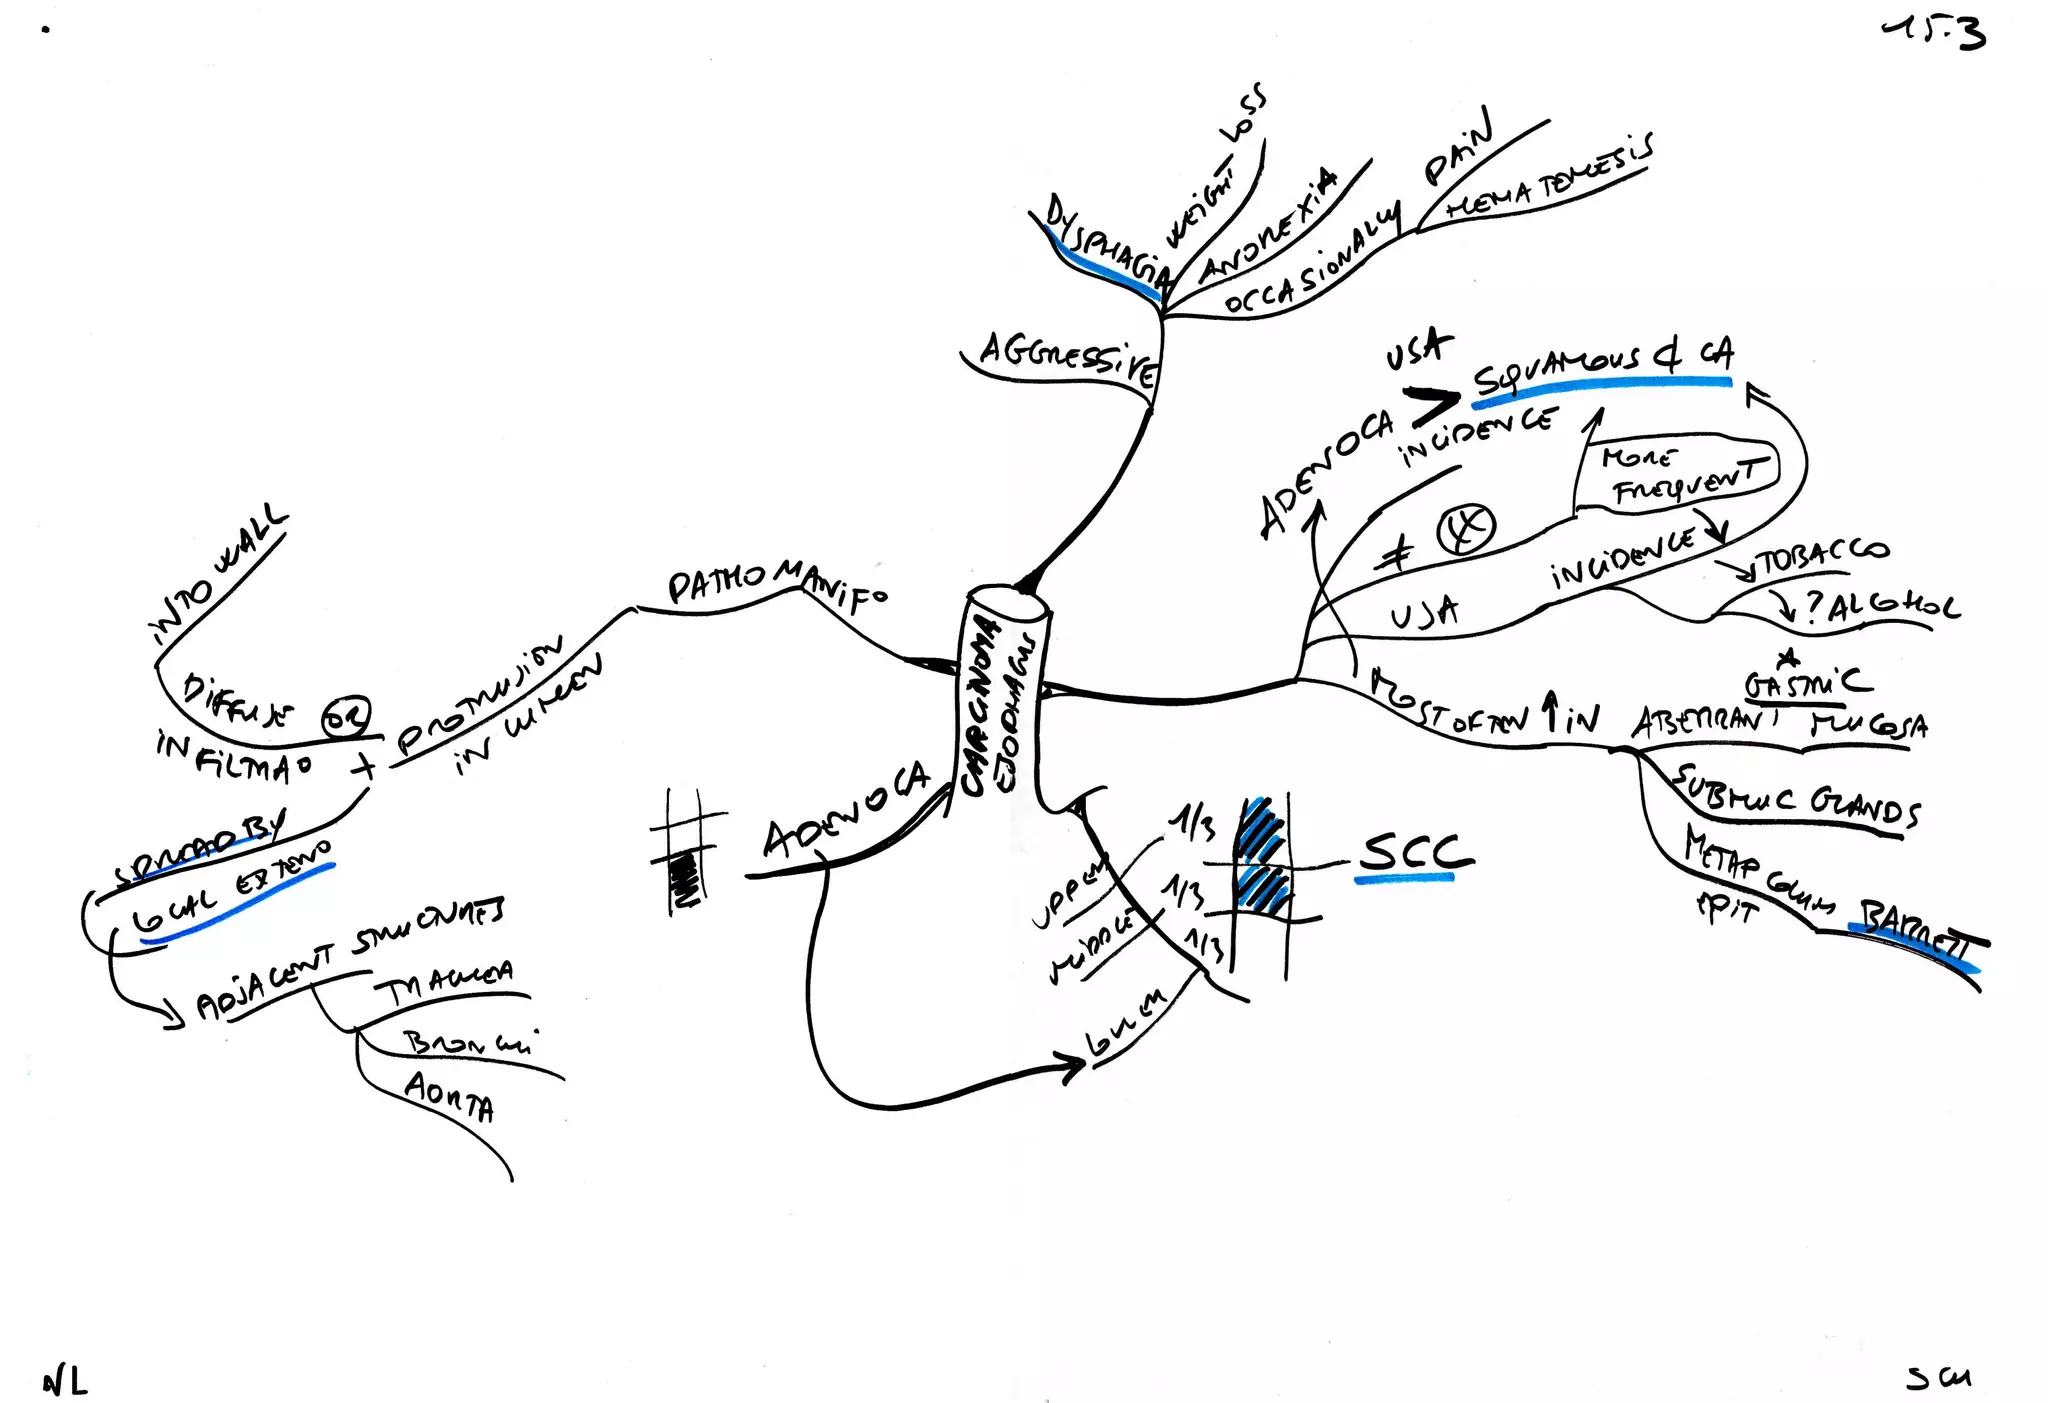 15.3
DYSPHAGIA
WEIGHT LOSS
ANOREXIA
OCCASIONALLY
PAIN
HEMATEMESIS
AGGRESSIVE
USA
ADENOCA > SQUAMOUS ¢ CA
INCIDENCE
≠
MORE
FREQUENT
USA
INCIDENCE
TOBACCO
? ALCOHOL
MOST OFTEN ↑ IN
GASTRIC
ABERRANT MUCOSA
SUBMUC GLANDS
METAP COLUM
EPIT
BARRETT
CARCINOMA
ESOPHAGUS
PATHO MANIF
PROTRUSION
IN LUMEN
OR
DIFFUSE
INFILTRAO
INTO WALL
+
SPREAD BY
LOCAL EXTENO
ADJACENT STRUCTURES
TRACHEA
BRONCHI
AORTA
ADENOCA
UPPER 1/3
MIDDLE 1/3
LOWER 1/3
SCC
NL